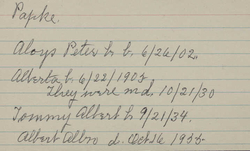 Papke.
Aloys Peter b. b. 6/26/02.
Alberta b. 6/22/1905
They were md. 10/21/30
Tommy Albert b. 9/21/34.
Albert Albro d. Oct 16 1955